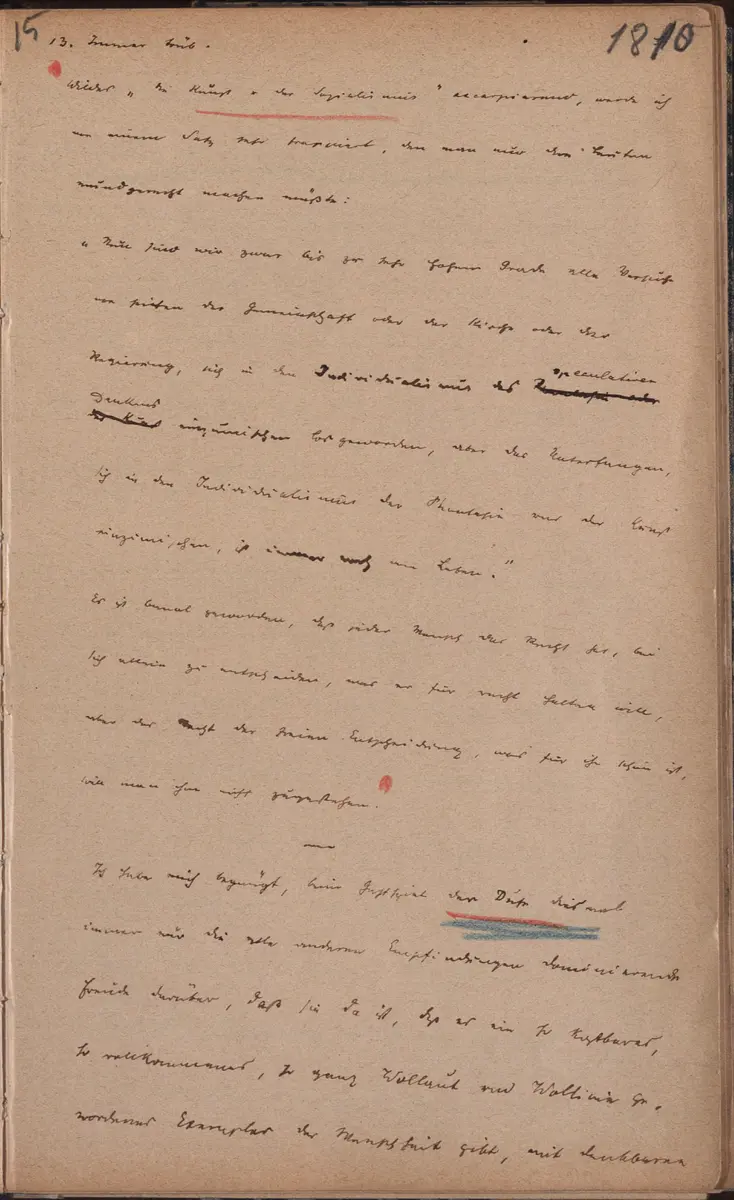 15
1810
13. Immer trüb.
Wildes „Die Kunst u der Sozialismus" excerpierend, werde ich
von einem Satz sehr frappiert, den man nur den Leuten
mundgerecht machen müßte:
„Nun sind wir zwar bis zu sehr hohem Grade alle Versuche
von seiten der Gemeinschaft oder der Kirche oder der
Regierung, sich in den Individualismus des speculativen
Denkens einzumischen losgeworden, aber das Unterfangen,
sich in den Individualismus der Phantasie und der Kunst
einzumischen, ist immer noch am Leben."
Es ist banal geworden, daß jeder Mensch das Recht hat, bei
sich allein zu entscheiden, was er für recht halten will,
aber das Recht der freien Entscheidung, was für ihn schön ist,
will man ihm nicht zugestehen.
Ich habe mich begnügt, beim Gastspiel der Duse diesmal
immer nur die alle anderen Empfindungen dominierende
Freude darüber, daß sie da ist, daß es ein so kostbares,
so vollkommenes, so ganz Wollaut und Wollinie ge-
wordenes Exemplar der Menschheit gibt, mit dankbaren